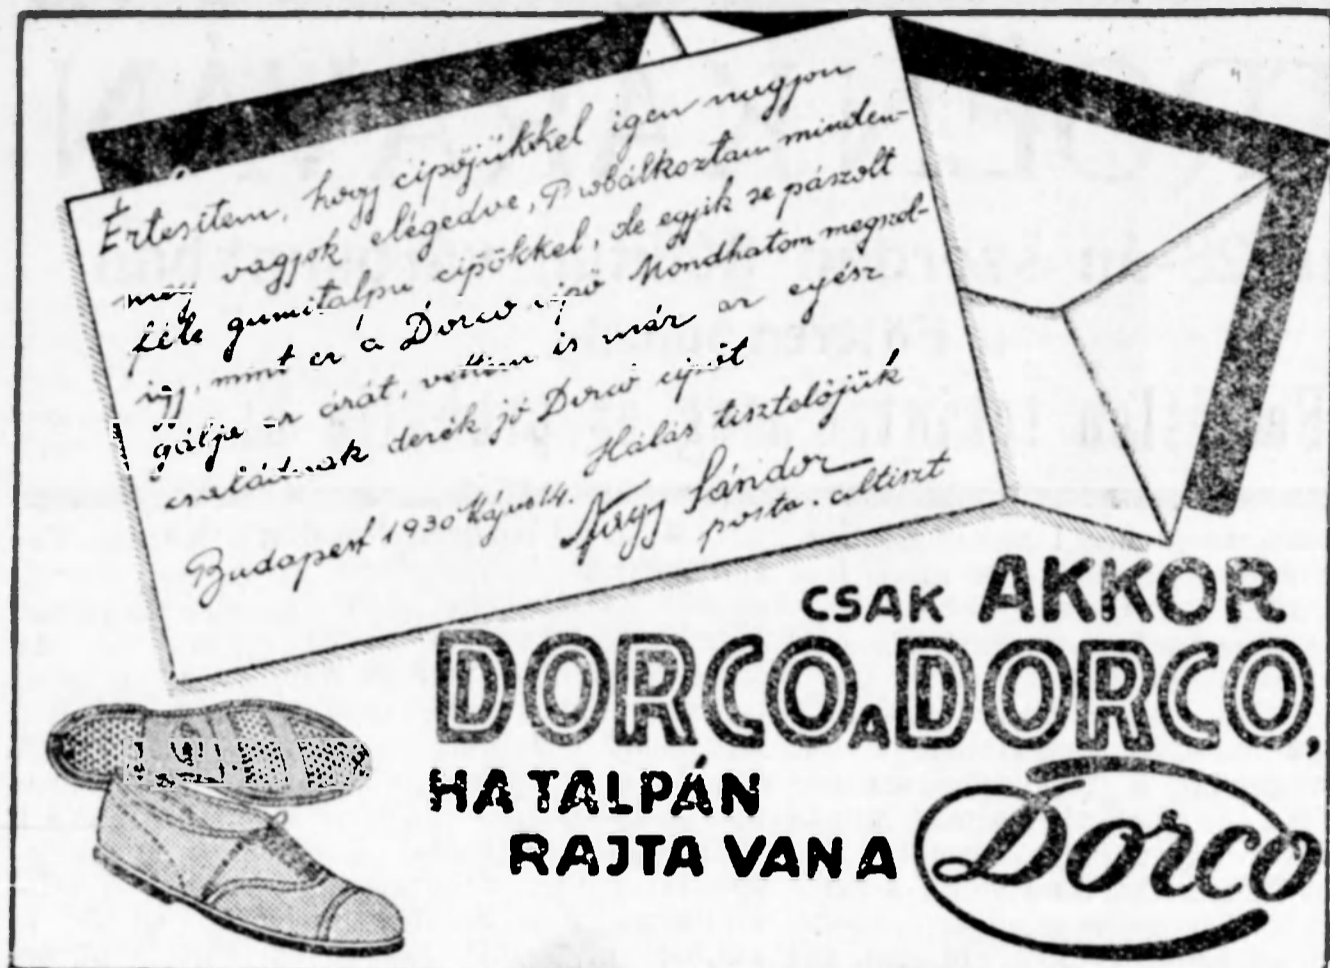 Értesítem, hogy cipőjükkel igen nagyon
meg vagyok elégedve, Probálkoztam minden-
féle gumitalpu cipőkkel, de egyik se pászolt
ugy, mint ez a Dorco cipő Mondhatom megszol-
gálja az árát, vettem is már az egész
családnak derék jó Dorco cipőt
Hálás tisztelőjük
Budapest 1930 Május 14. Nagy Sándor
posta. altiszt
CSAK AKKOR
DORCO A DORCO,
HA TALPÁN
RAJTA VAN A Dorco